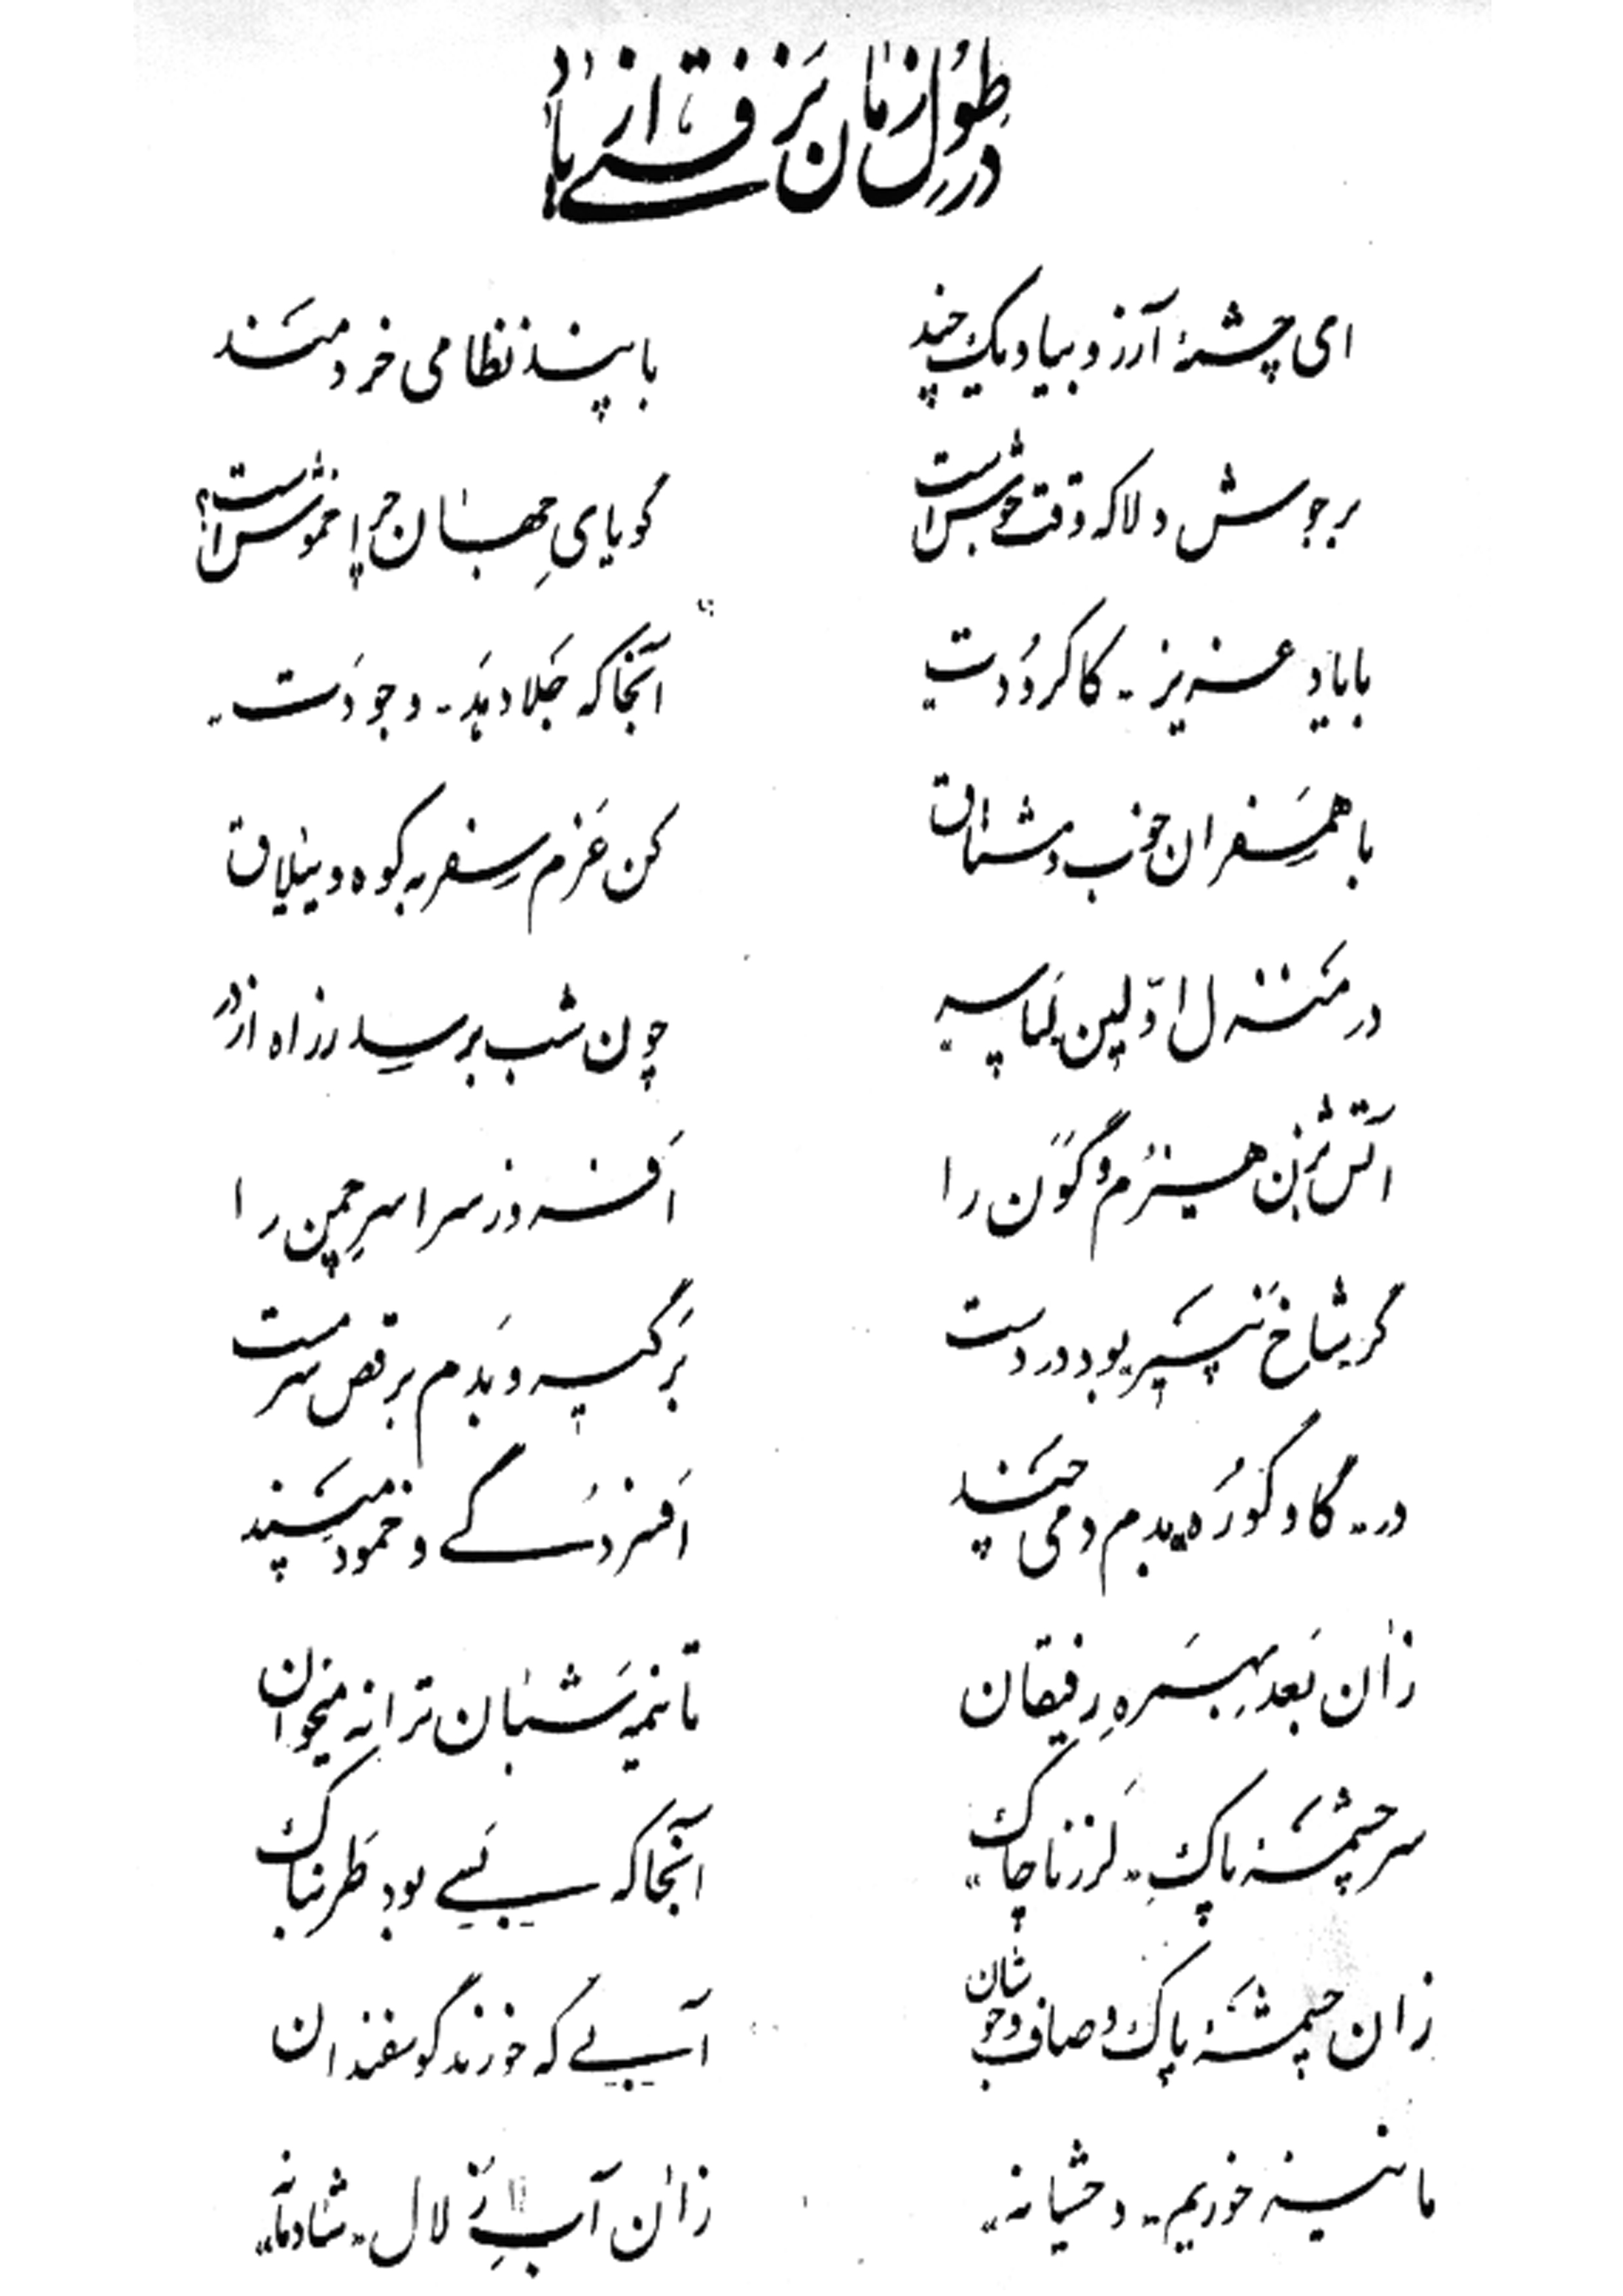 در طول زمان نرفته از یاد
ای چشمهٔ آرزو بیا و یک چند با پند نظامی خردمند
برجوش دلا که وقت جوش است گویای جهان چرا خموش است؟
با یاد عزیز - کاکرودت" آنجا که جلا دهد - وجودت"
با همسفران خوب و مشتاق کن عزم سفر به کوه و ییلاق
در منزل اولین چون شب برسید راه از در
آتش بزن هیزم و گون را افروز سراسر چمن را
گر شاخ نپیر بود در دست برگیر و بدم برقص سرمست
در - گاو کوره" بدم دمی چند افسردگی و خمود مپسند
زان بعد بهمره رفیقان تا نیمه شبان ترانه میخوان
سرچشمهٔ پاک - لرزناچاک" آنجا که بسی بود طربناک
زان چشمهٔ پاک و صاف و جوشان آبی که خورند گوسفندان
ما نیز خوریم - وحشیانه" زان آب زلال - شادمانه"